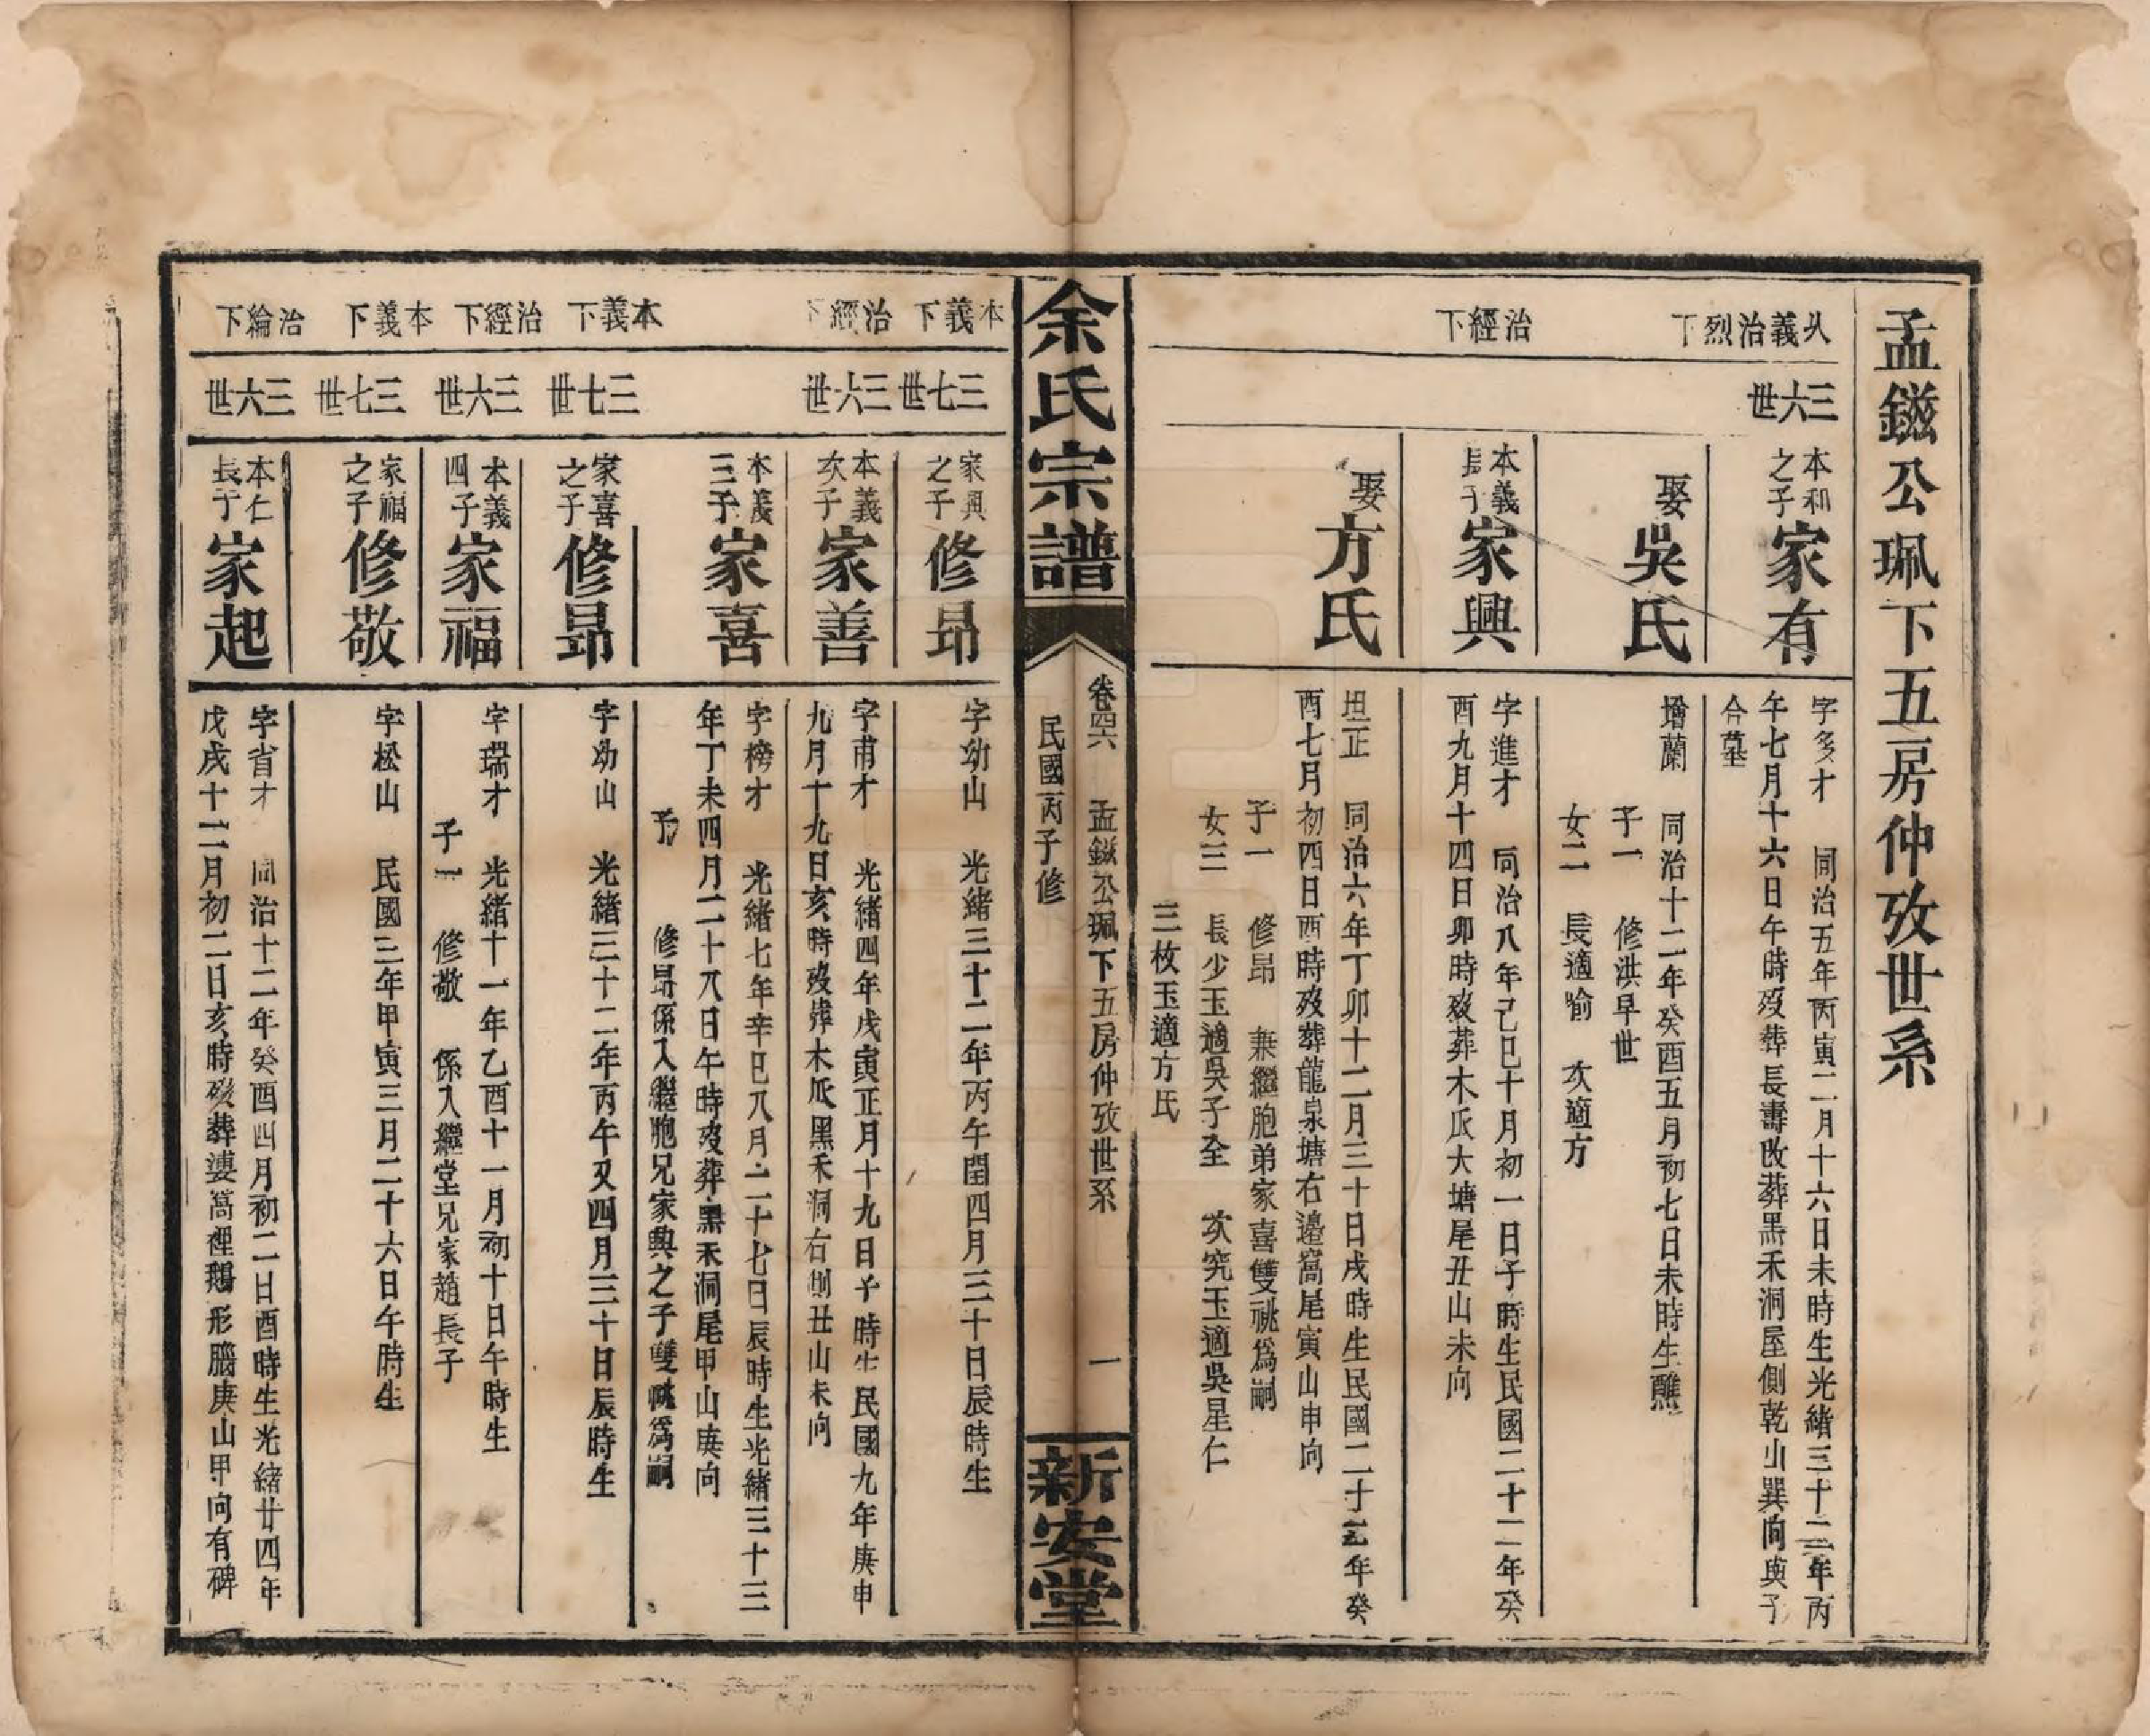 孟鎡公珮下五房仲攷世系
乆義治烈下
三六世
本和之子 家有
字多才 同治五年丙寅二月十六日未時生光緒三十二年丙
午七月十六日午時歿葬長壽改葬黑禾洞屋側乾山巽向與子
合墓
娶 吳氏
增蘭 同治十二年癸酉五月初七日未時生醮
子一 修洪早世
女二 長適喻 次適方
治經下
本義長子 家興
字進才 同治八年己巳十月初一日子時生民國二十二年癸
酉九月十四日卯時歿葬木瓜大塘尾丑山未向
娶 方氏
坦正 同治六年丁卯十二月三十日戌時生民國二十二年癸
酉七月初四日酉時歿葬龍泉塘右邊窩尾寅山申向
子一 修昻 兼繼胞弟家喜雙祧為嗣
女三 長少玉適吳子全 次究玉適吳星仁
三枚玉適方氏
余氏宗譜
卷四六 孟鎡公珮下五房仲攷世系 一
民國丙子修
新安堂
本義下
三七世
家興之子 修昻
字幼山 光緒三十二年丙午閏四月三十日辰時生
治經下
三六世
本義次子 家善
字甫才 光緒四年戊寅正月十九日子時生民國九年庚申
九月十九日亥時歿葬木瓜黑禾洞右側丑山未向
本義三子 家喜
字榜才 光緒七年辛巳八月二十七日辰時生光緒三十三
年丁未四月二十八日午時歿葬黑禾洞尾甲山庚向
子 修昻係入繼胞兄家興之子雙祧為嗣
本義下
三七世
家喜之子 修昻
字幼山 光緒三十二年丙午又四月三十日辰時生
治經下
三六世
本義四子 家福
字瑞才 光緒十一年乙酉十一月初十日午時生
子一 修敬 係入繼堂兄家趙長子
本義下
三七世
家福之子 修敬
字松山 民國三年甲寅三月二十六日午時生
治綸下
三六世
本仁長子 家起
字省才 同治十二年癸酉四月初二日酉時生光緒廿四年
戊戌十二月初二日亥時歿葬婆窩裡鵝形腦庚山甲向有碑